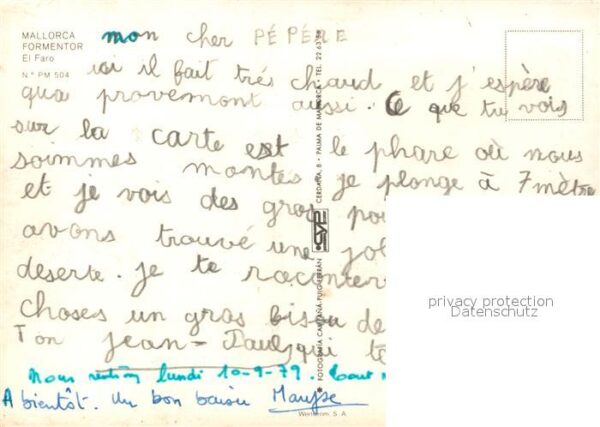 MALLORCA
FORMENTOR
El Faro
N.º PM 504
mon cher PÉPÉRE
ici il fait trés chaud et j'espère
qua provemont aussi. Ce que tu vois
sur la carte est le phare où nous
soimmes montés je plonge à 7 mètre
et je vois des gros
avons trouvé une
deserte. je te raconter
choses un gros bisou de
Ton jean-Paul, qui te
Nous rentrons lundi 10-9-79. Tout
A bientôt. Un bon baiser Maryse
FOTOGRAFIA CARTAÑA-PUIGFERRÁN
CERDAÑA, 8 - PALMA DE MALLORCA - TEL. 22 63
privacy protection
Datenschutz